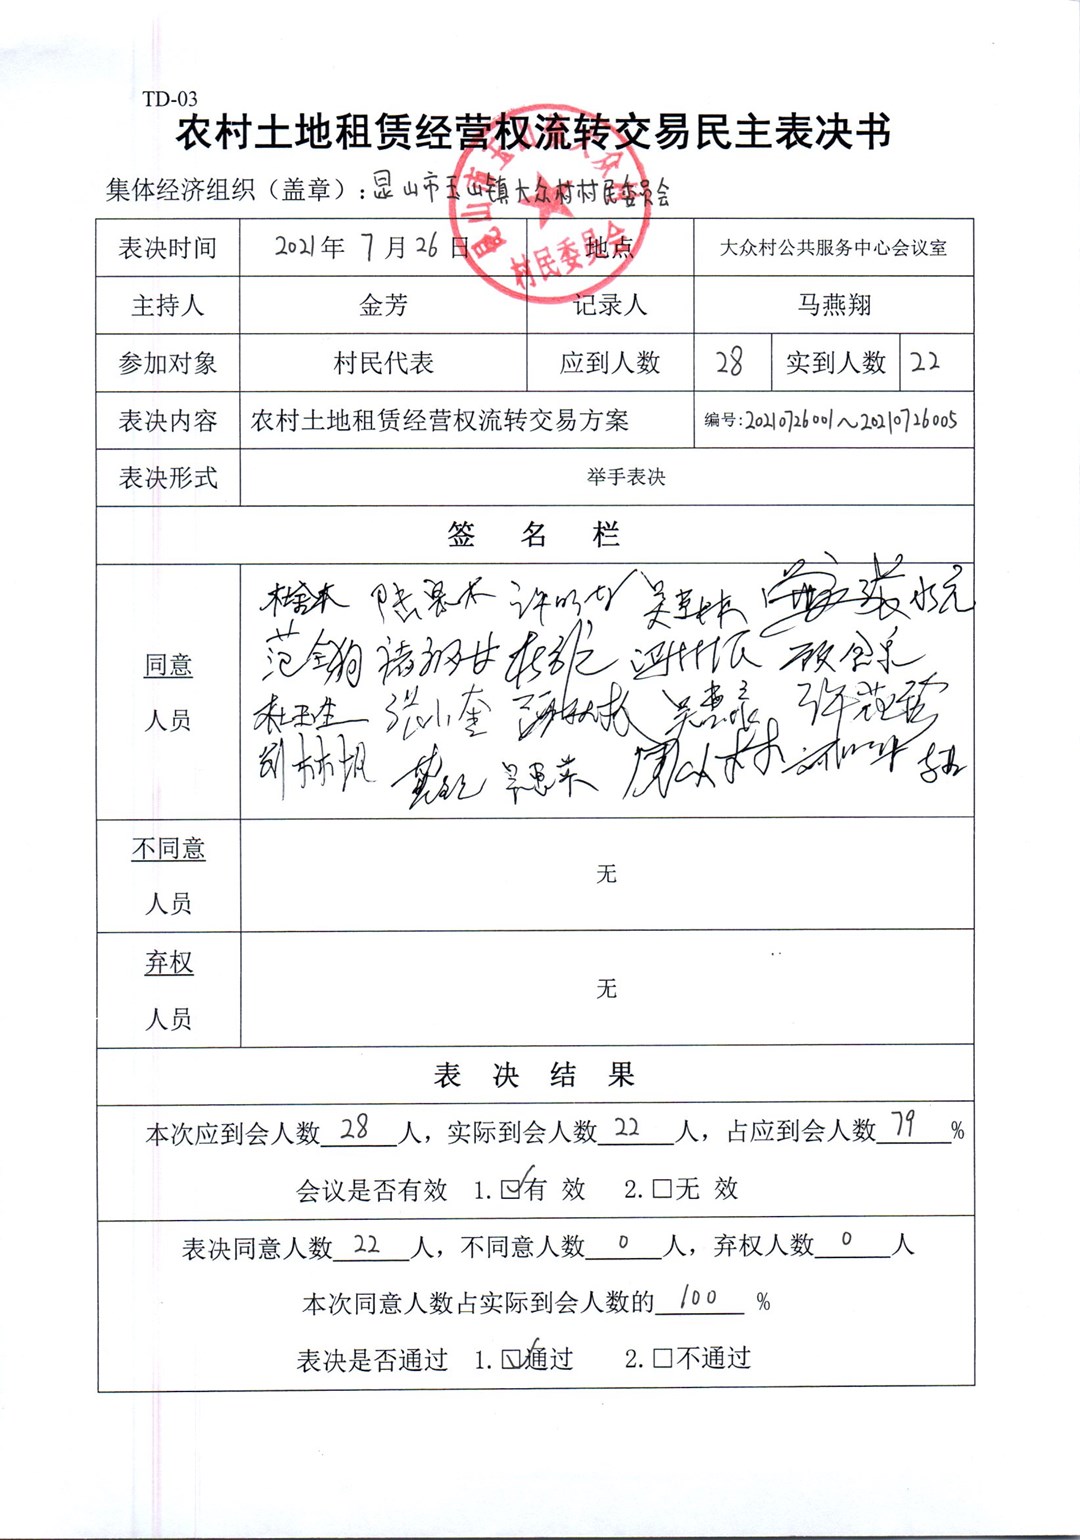 TD-03
农村土地租赁经营权流转交易民主表决书
集体经济组织（盖章）：昆山市玉山镇大众村村民委员会
表决时间 2021年 7月26日 地点 大众村公共服务中心会议室
主持人 金芳 记录人 马燕翔
参加对象 村民代表 应到人数 28 实到人数 22
表决内容 农村土地租赁经营权流转交易方案 编号:20210726001~20210726005
表决形式 举手表决
签 名 栏
同意
人员
范全狗
张小奎 吴惠泉
吴惠英
不同意
人员
无
弃权
人员
无
表 决 结 果
本次应到会人数 28 人，实际到会人数 22 人，占应到会人数 79 %
会议是否有效 1.☑有 效 2.□无 效
表决同意人数 22 人，不同意人数 0 人，弃权人数 0 人
本次同意人数占实际到会人数的 100 %
表决是否通过 1.☑通过 2.□不通过